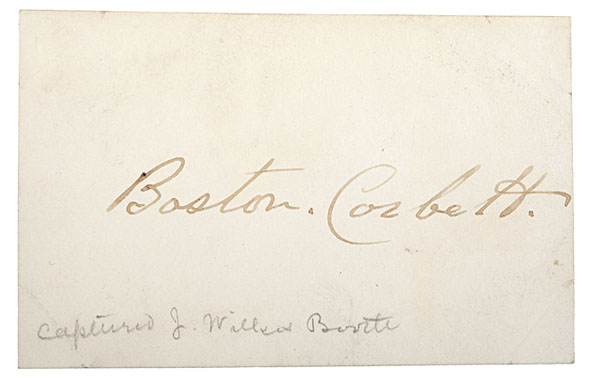 Boston. Corbett.
Captured J. Wilkes Booth